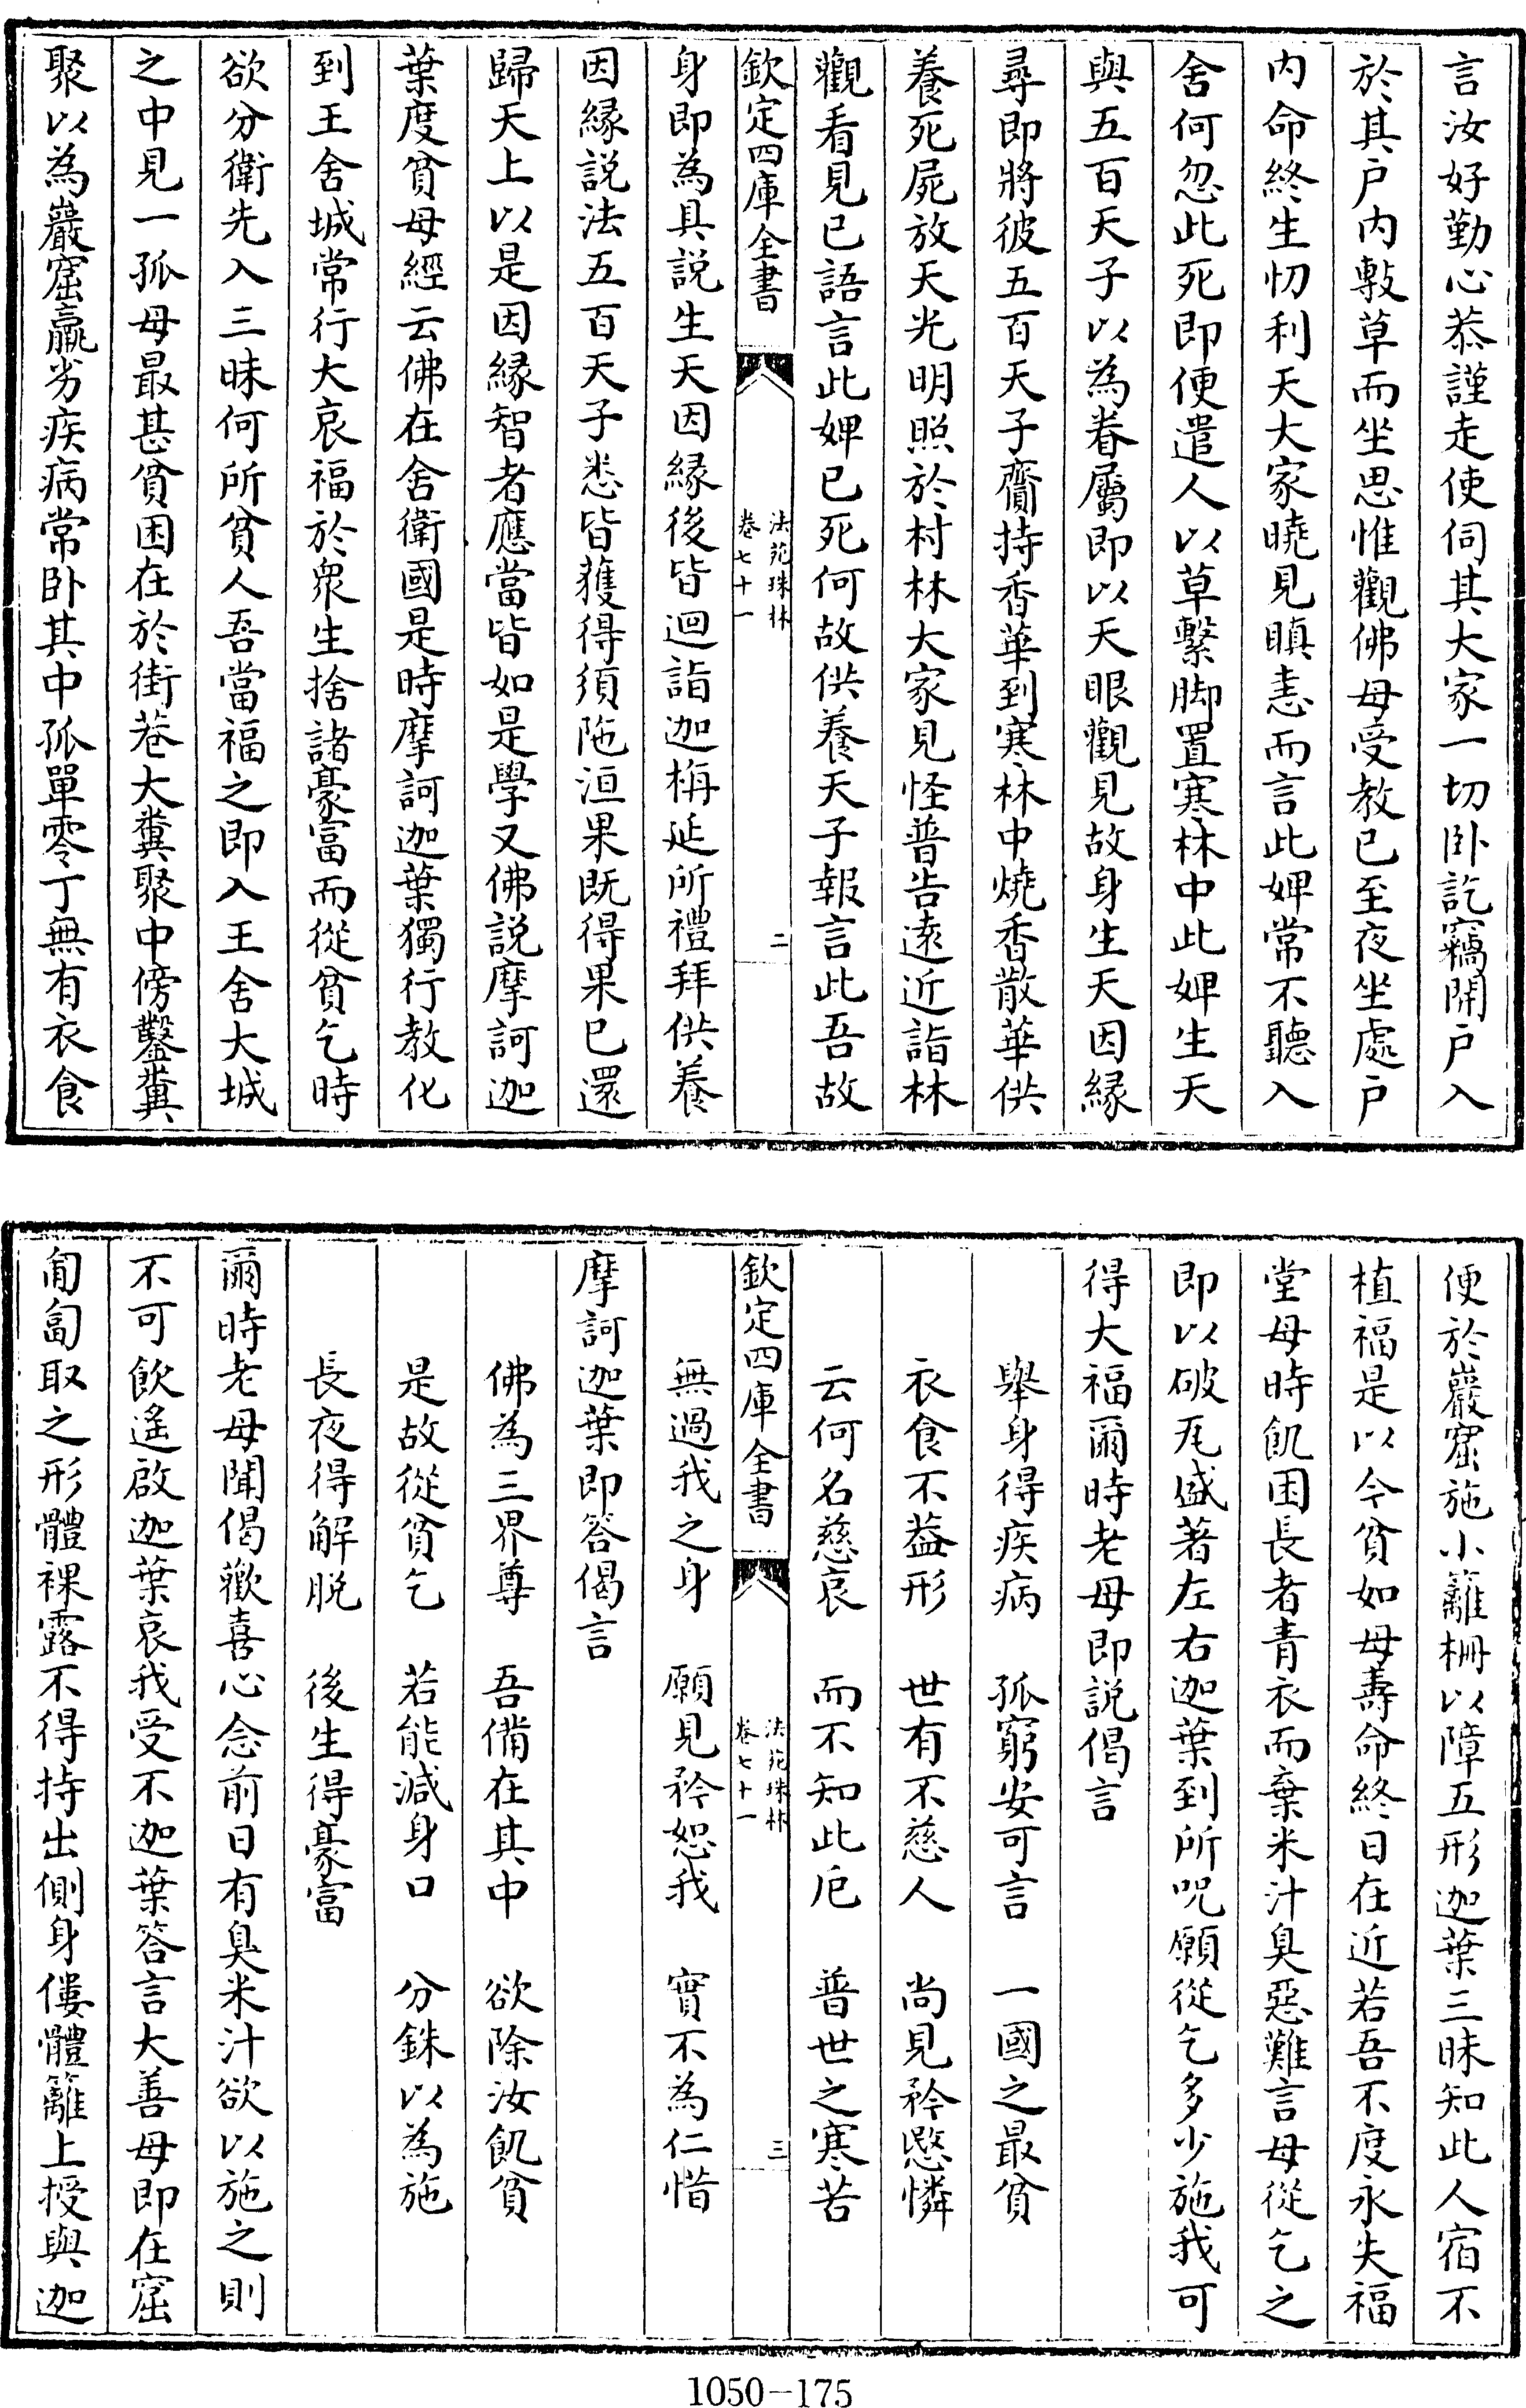 言汝好勤心恭謹走使伺其大家一切卧訖竊開户入
於其户内敷草而坐思惟觀佛母受教已至夜坐處户
内命終生忉利天大家曉見瞋恚而言此婢常不聽入
舍何忽此死即便遣人以草繫脚置寒林中此婢生天
與五百天子以為眷屬即以天眼觀見故身生天因縁
尋即將彼五百天子齎持香華到寒林中燒香散華供
養死屍放天光明照於村林大家見怪普告遠近詣林
觀看見已語言此婢已死何故供養天子報言此吾故
欽定四庫全書
法苑珠林
卷七十一
二
身即為具説生天因縁後皆迴詣迦栴延所禮拜供養
因縁説法五百天子悉皆獲得須陁洹果既得果已還
歸天上以是因縁智者應當皆如是學又佛説摩訶迦
葉度貧母經云佛在舍衛國是時摩訶迦葉獨行教化
到王舍城常行大哀福於衆生捨諸豪富而從貧乞時
欲分衛先入三昧何所貧人吾當福之即入王舍大城
之中見一孤母最甚貧困在於街巷大糞聚中傍鑿糞
聚以為巖窟羸劣疾病常卧其中孤單零丁無有衣食
便於巖窟施小籬柵以障五形迦葉三昧知此人宿不
植福是以今貧如母壽命終日在近若吾不度永失福
堂母時飢困長者青衣而棄米汁臭惡難言母從乞之
即以破瓦盛著左右迦葉到所呪願從乞多少施我可
得大福爾時老母即説偈言
舉身得疾病　孤窮安可言　一國之最貧
衣食不葢形　世有不慈人　尚見矜愍憐
云何名慈哀　而不知此厄　普世之寒苦
欽定四庫全書
法苑珠林
卷七十一
三
無過我之身　願見矜恕我　實不為仁惜
摩訶迦葉即答偈言
佛為三界尊　吾備在其中　欲除汝飢貧
是故從貧乞　若能減身口　分銖以為施
長夜得解脱　後生得豪富
爾時老母聞偈歡喜心念前日有臭米汁欲以施之則
不可飲遙啟迦葉哀我受不迦葉答言大善母即在窟
匍匐取之形體裸露不得持出側身僂體籬上授與迦
1050－175